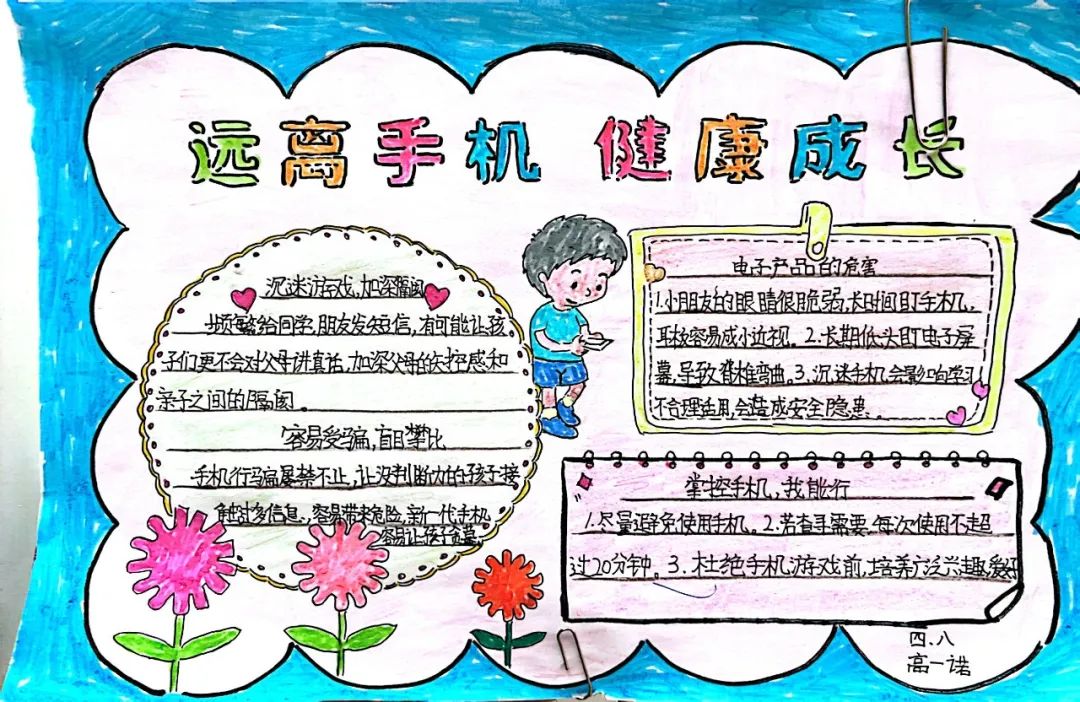 远离手机 健康成长
沉迷游戏,加深隔阂
频繁给同学,朋友发短信,有可能让孩
子们更不会对父母讲真话,加深父母的失控感和
亲子之间的隔阂。
容易受骗,盲目攀比
手机行骗屡禁不止,让没判断力的孩子接
触过多信息,容易带来危险,新一代手机
容易让孩子
电子产品的危害
1.小朋友的眼睛很脆弱,长时间盯手机,
容易成小近视。2.长期低头盯电子屏
幕,导致脊椎弯曲。3.沉迷手机会影响学习
不合理适用,会造成安全隐患。
掌控手机,我能行
1.尽量避免使用手机。2.若查寻需要,每次使用不超
过20分钟。3.杜绝手机游戏前,培养广泛兴趣爱好
四.八
高一诺